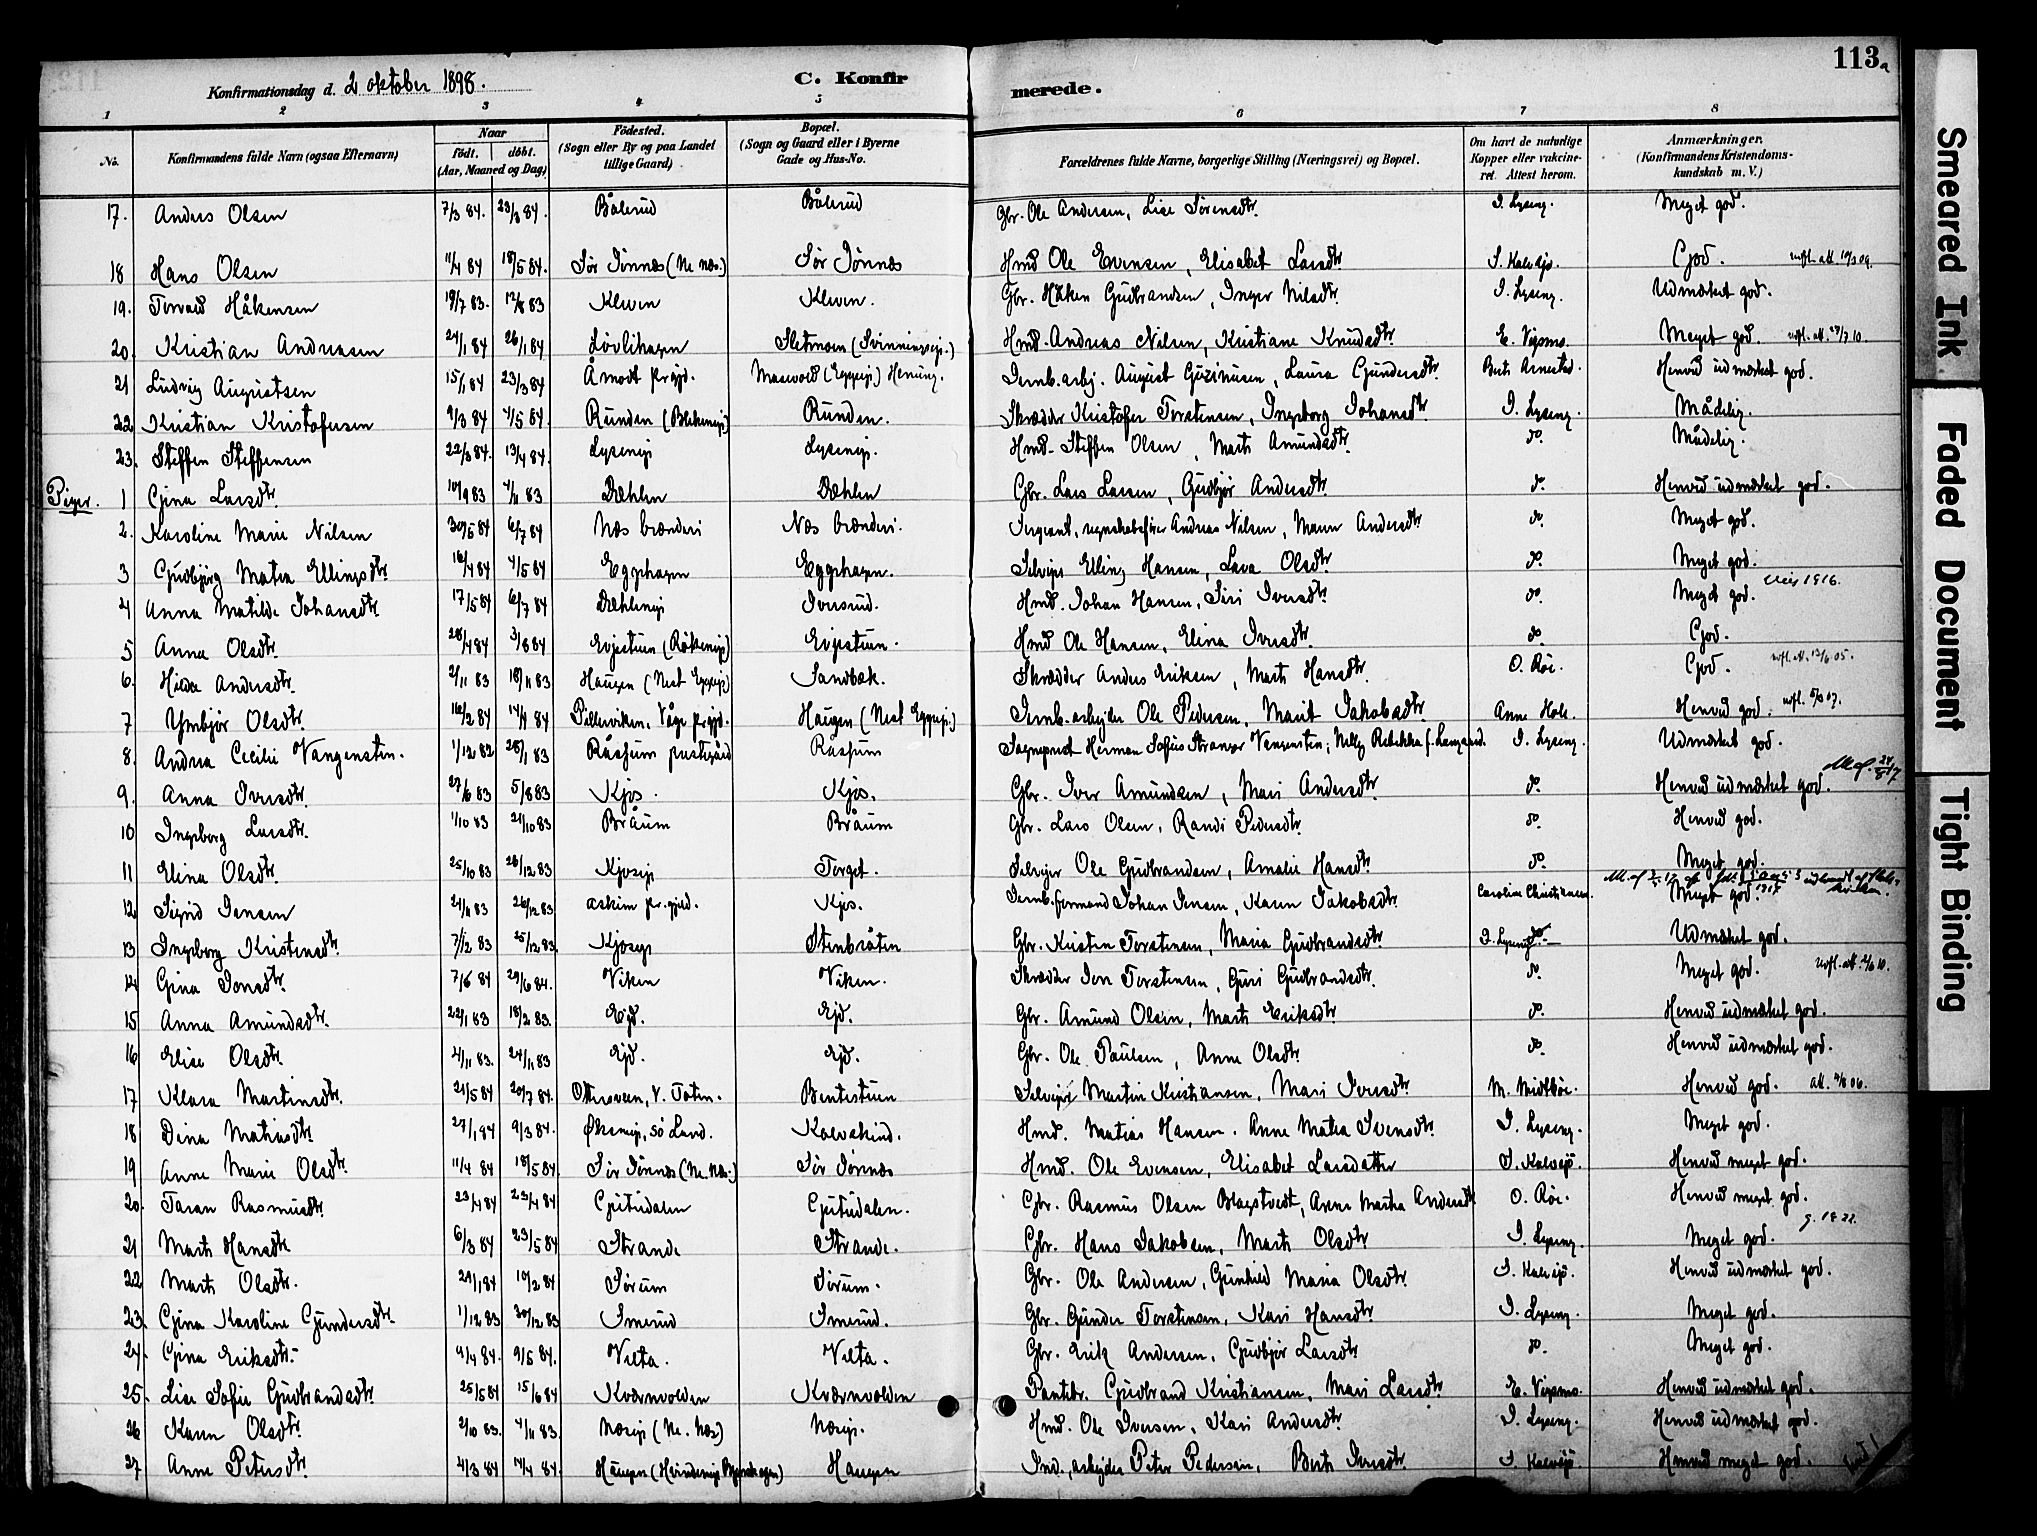 Konfirmationsdag d. 2 oktober 1898.
C. Konfir
merede.
113a
1 2 3 4 5 6 7 8
No.
Konfirmandens fulde Navn (ogsaa Efternavn)
Naar
født. døbt.
(Aar, Maaned og Dag)
Fødested.
(Sogn eller By og paa Landet
tillige Gaard)
Bopæl.
(Sogn og Gaard eller i Byerne
Gade og Hus-No.
Forældrenes fulde Navne, borgerlige Stilling (Næringsvei) og Bopæl.
Om havt de naturlige
Kopper eller vakcine-
ret. Attest herom.
Anmærkninger.
(Konfirmandens Kristendoms-
kundskab m. V.)
17. Anders Olsen 7/3 84. 23/3 84. Bålerud Bålerud Gbr. Ole Andersen, Lise Sørensdtr. I. Lyseng. Meget god.
18 Hans Olsen 11/4 84 18/5 84. Sør Tønnæs (Ne. næs.) Sør Tønnæs Hmd Ole Evensen, Elisabet Larsdtr. God.
19. Torvald Håkensen 19/7 83. 12/8 83 Kleven Kleven. Gbr. Håken Gudbrandsen, Inger Nilsdtr. I. Lyseng. Udmærket god.
20. Kristian Andreasen 24/1 84 26/1 84 Løvlihagen Hmd. Andreas Nilsen, Kristiane Knudsdtr E. Vigsmo. Meget god.
21 Ludvig Augustsen 15/1 84 23/3 84 Åmodt prgjd. Jernb. arbj. August Laura Gundersdtr. Henved udmærket god.
22 Kristian Kristofersen 9/3 84 4/5 84. Runden Runden. Skrædder Kristofer Torstensen, Ingeborg Johansdtr I. Lyseng. Mådelig.
23. Steffen Steffensen 22/3 84. 13/4 84. Lysengj Lysengj. Hmd. Steffen Olsen, Marte Amundsdtr. do. Mådelig.
Piger. 1 Gina Larsdtr. 10/9 83 4/11 83 Dæhlen Dæhlen Gbr. Lars Larsen, Gudbjør Andersdtr. do. Henved udmærket god.
2. Karoline Marie Nilsen 30/5 84 6/7 84 Næs brænderi Næs brænderi. Sergeant, regnskabsfører Andreas Nilsen, Maren Andersdtr do. Meget god.
3 Gudbjørg Matea Ellingsdtr. 16/4 84 4/5 84 Eggehagen Eggehagen. Selveier Elling Hansen, Lava Olsdtr. do. Meget god.
4 Anna Matilde Johansdtr 17/5 84 6/7 84 Dæhlengj Iversrud. Hmd. Johan Hansen, Siri Iversdtr. do. Meget god. 1916.
5 Anna Olsdtr. 28/4 84 3/8 84 Evjestuen Evjestuen. Hmd Ole Hansen, Elina Iversdtr. do God.
6. Hilda Andersdtr. 2/11 83 18/11 83 Haugen Sandbæk. Skrædder Anders Eriksen, Marte Hansdtr. O. Røe. God.
7 Ymbjør Olsdtr. 16/2 84 14/4 84 Pillerviken, Våge prgjd. Haugen Jernb. arbejder Ole Pedersen, Marit Jakobsdtr. Anne Hole. Henved god.
8. Andrea Cecilie Vangensten. 1/12 82 28/1 83 Råsjum prestegård Rasjum Sogneprest Herman Sofus Stranger Vangensten; Nelly Rebekka f. Langaard. I. Lyseng. Udmærket god.
9. Anna Iversdtr. 27/6 83 5/8 83 Kjøs. Kjøs. Gbr. Iver Amundsen, Mari Andersdtr. do. Henved udmærket god.
10 Ingeborg Larsdtr. 1/10 83 21/10 83 Bråum Bråum Gbr. Lars Olsen, Randi Pedersdtr. do. Henved god.
11 Elina Olsdtr. 25/10 83 26/12 83 Kjøsegj Torget. Selveier Ole Gudbrandsen, Amalie Hansdtr. do. Meget god.
12 Sigrid Jensen 21/11 83 26/12 83 Askim pr.gjeld. Kjøs. Jernb. formand Johan Jensen, Karen Jakobsdtr. Caroline Christiansen. Meget god.
13 Ingeborg Kristensdtr. 7/12 83 25/12 83. Kjøsegj Stenbråten Gbr. Kristen Torstensen, Maria Gudbrandsdtr I. Lyseng Udmærket god.
14 Gina Jonsdtr. 7/6 84 29/6 84. Viken Viken. Skrædder Jon Torstensen, Guri Gudbrandsdtr. do. Meget god.
15 Anna Amundsdtr. 22/1 83 18/2 83. Ejd. Ejd. Gbr. Amund Olsen, Marte Eriksdtr do. Henved udmærket god.
16 Elise Olsdtr. 4/11 83. 24/11 83 Ejd. Ejd. Gbr. Ole Paulsen, Anne Olsdtr. do. Henved udmærket god.
17 Klara Martinsdtr. 21/5 84 20/7 84. Ottersveen, V. Toten. Bentestuen Selveier Martin Kristiansen, Mari Iversdtr. M. Midtbøe. Henved god.
18 Dina Matiasdtr. 27/1 84 9/3 84. Øksnegj. Sø. Land. Kalvskind. Hmd. Matias Hansen. Anne Matea Svensdtr. I. Lyseng. Meget god.
19 Anne Marie Olsdtr. 11/4 84 18/5 84. Sør Tønnæs (Ne. Næs.) Sør Tønnæs Hmd. Ole Evensen, Elisabet Larsdatter Henved meget god.
20. Taran Rasmusdtr. 23/4 84 23/4 84 Gjetudalen Gjetudalen. Gbr. Rasmus Olsen Blagstvedt, Anne Martha Andersdtr O. Røe. Henved meget god.
21 Marte Hansdtr 6/3 84 23/5 84 Strande Strande. Gbr. Hans Jakobsen, Marte Olsdtr I. Lyseng. Meget god.
22 Marte Olsdtr. 29/1 84 10/2 84 Sørum Sørum. Gbr. Ole Andersen, Gunhild Maria Olsdtr. Henved udmærket god.
23. Gina Karoline Gundersdtr. 1/12 83 30/12 83 Smerud Smerud. Gbr. Gunder Torstensen, Kari Hansdtr. I. Lyseng. Meget god.
24. Gina Eriksdtr. 9/4 84. 9/5 84. Velta. Velta. Gbr. Erik Andersen, Gudbjør Larsdtr do. Meget god.
25. Lise Sofie Gudbrandsdtr. 25/5 84 15/6 84 Kværnvolden Kværnvolden Pantebr. Gudbrand Kristiansen, Mari Larsdtr. E. Vigsmo. Henved udmærket god.
26 Karen Olsdtr. 2/10 83. 4/11 83. Næsegj (Ne. Næs) Næsegj. Hmd. Ole Iversen, Kari Andersdtr. I. Lyseng. Henved udmærket god.
27 Anne Petersdtr. 4/3 84 14/4 84. Haugen Haugen Ind., arbejder Peter Pedersen, Berte Iversdtr. Henved meget god.
Smeared Ink
Faded Document
Tight Binding